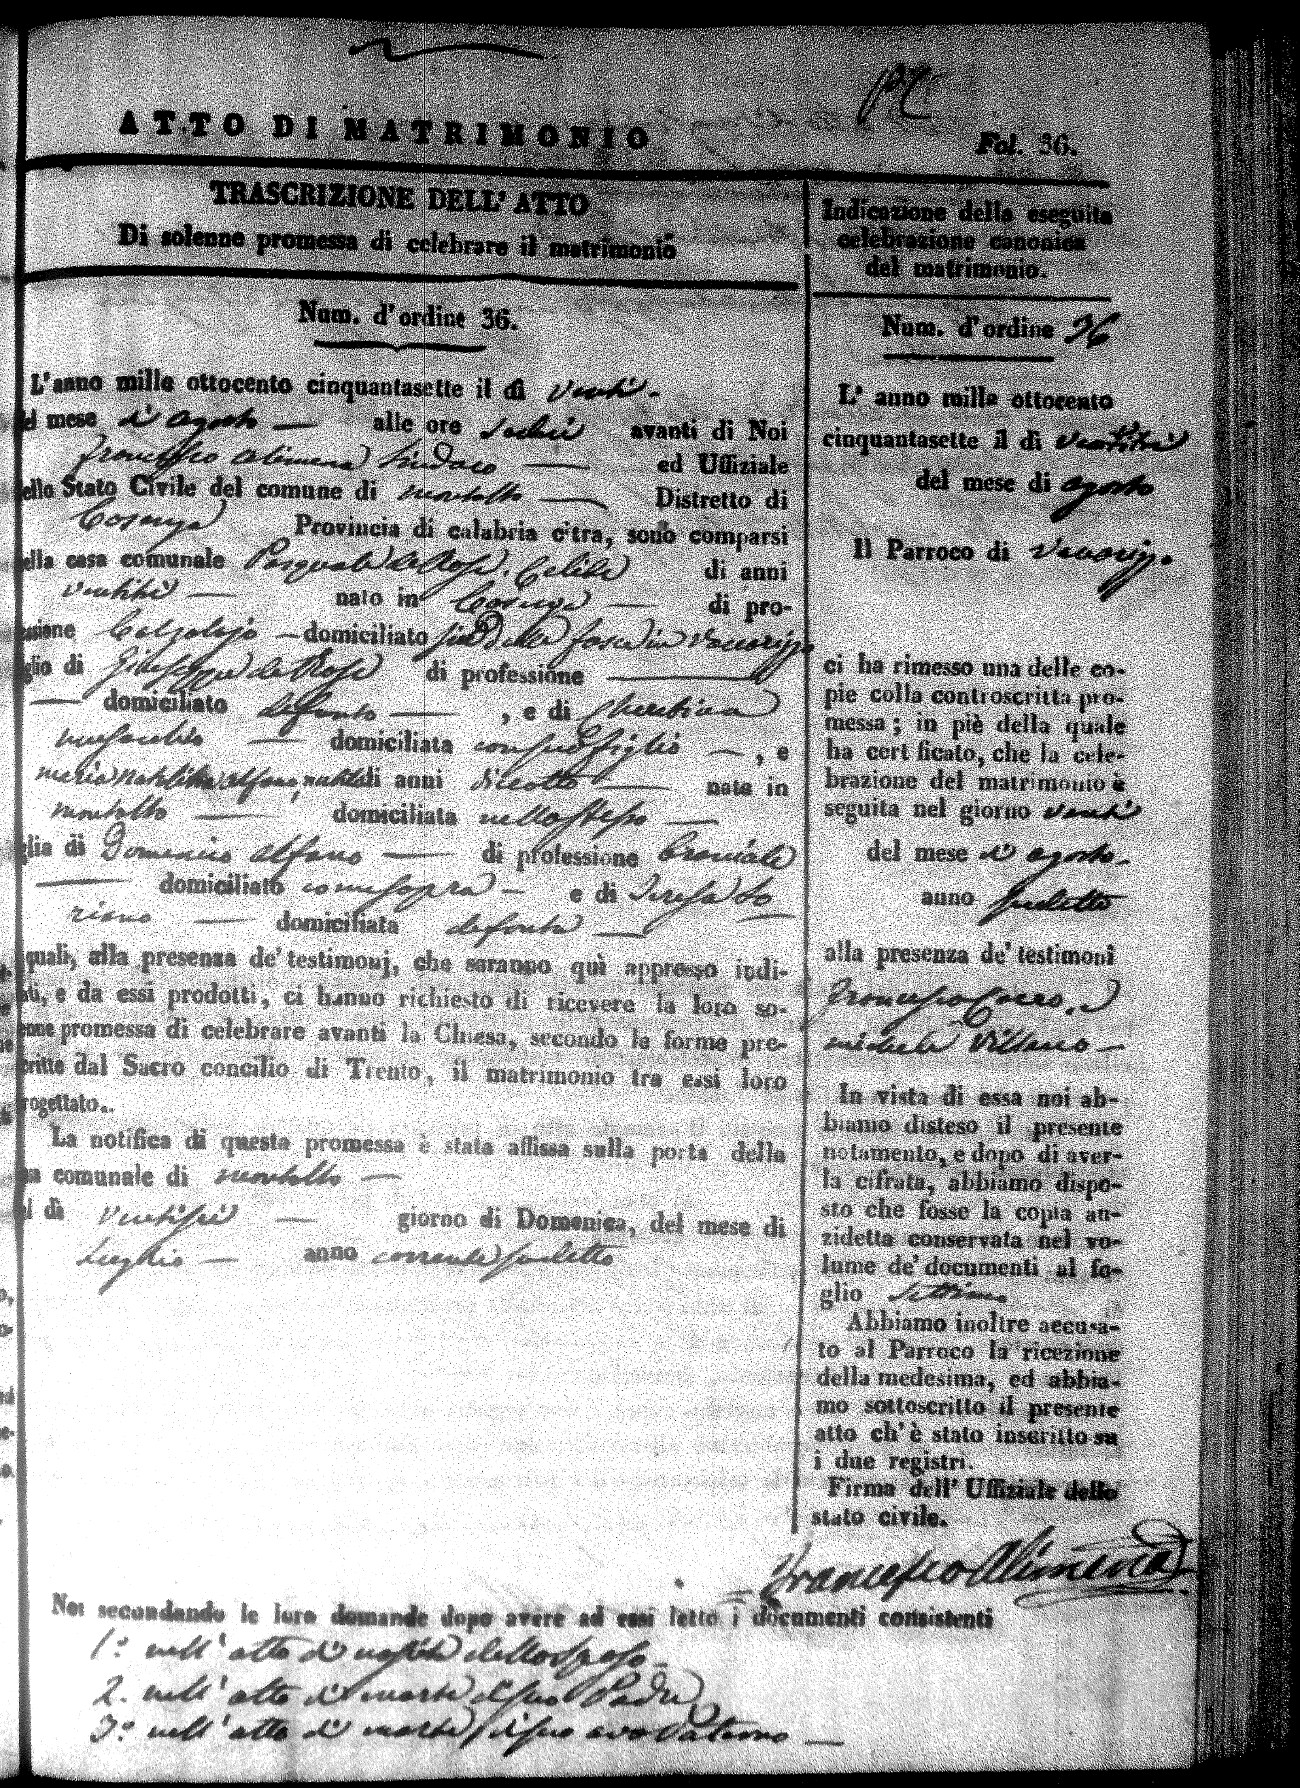 ATTO DI MATRIMONIO
Fol. 36.
TRASCRIZIONE DELL' ATTO
Di solenne promessa di celebrare il matrimonio
Num. d'ordine 36.
L'anno mille ottocento cinquantasette il dì venti.
mese di agosto — alle ore sedici avanti di Noi
Francesco Alimena Sindaco — ed Uffiziale
Stato Civile del comune di Montalto — Distretto di
Cosenza Provincia di calabria citra, sono comparsi
casa comunale Pasquale de Rose, Celibe di anni
ventitrè — nato in Cosenza — di pro-
Calzolajo — domiciliato in Vaccarizzo
di Giuseppe de Rose di professione —
— domiciliato defonto —, e di
domiciliata con suo figlio —, e
Maria Alfano, nubile di anni diciotto — nata in
Montalto — domiciliata nello stesso —
di Domenico Alfano — di professione Crivinale
— domiciliato come sopra — e di Teresa So
riano — domiciliata defonta —
quali, alla presenza de' testimonj, che saranno quì appresso indi-
e da essi prodotti, ci hanno richiesto di ricevere la loro so-
promessa di celebrare avanti la Chiesa, secondo le forme pre-
dal Sacro concilio di Trento, il matrimonio tra essi loro
rogettato..
La notifica di questa promessa è stata affissa sulla porta della
comunale di Montalto —
dì ventisei — giorno di Domenica, del mese di
Luglio — anno corrente suddetto
Indicazione della eseguita
celebrazione canonica
del matrimonio.
Num. d'ordine 36
L' anno mille ottocento
cinquantasette il dì ventitrè
del mese di agosto
Il Parroco di Vaccarizzo.
ci ha rimesso una delle co-
pie colla controscritta pro-
messa; in piè della quale
ha cert ficato, che la cele-
brazione del matrimonio è
seguita nel giorno venti
del mese di agosto.
anno suddetto
alla presenza de' testimoni
Francesco Cocco, e
Michele Villano —
In vista di essa noi ab-
biamo disteso il presente
notamento, e dopo di aver-
la cifrata, abbiamo dispo-
sto che fosse la copia an-
zidetta conservata nel vo-
lume de' documenti al fo-
glio settimo
Abbiamo inoltre accusa-
to al Parroco la ricezione
della medesima, ed abbia-
mo sottoscritto il presente
atto ch' è stato inscritto su
i due registri.
Firma dell' Uffiziale dello
stato civile.
Francesco Alimena
Noi secondando le loro domande dopo avere ad essi letto i documenti consistenti
1.° nell' atto di nascita dello sposo —
2. nell' atto di morte di suo Padre
3.° nell' atto di morte di suo avo Paterno —